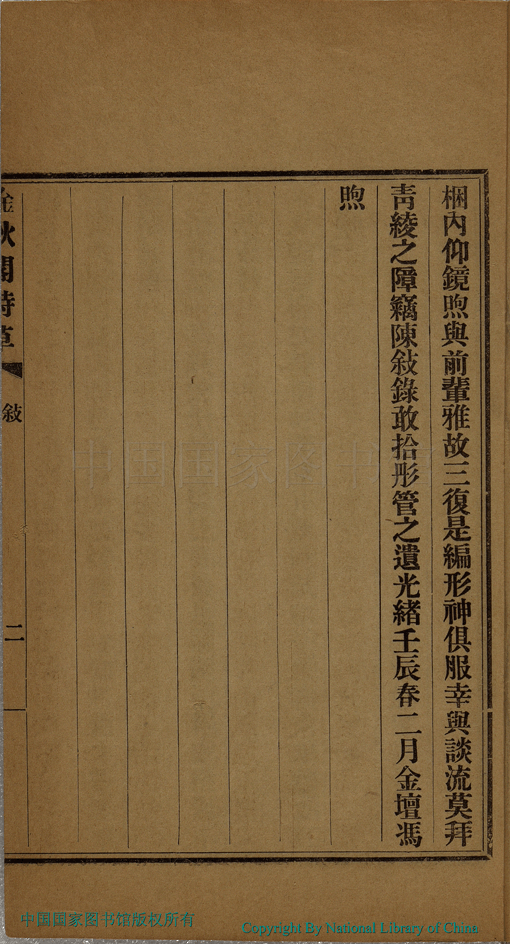 梱內仰鏡煦與前輩雅故三復是編形神俱服幸與談流莫拜
靑綾之障竊陳敍錄敢拾彤管之遺光緒壬辰春二月金壇馮
煦
秋閣詩草
敍
二
中国国家图书馆
中国国家图书馆版权所有
Copyright By National Library of China